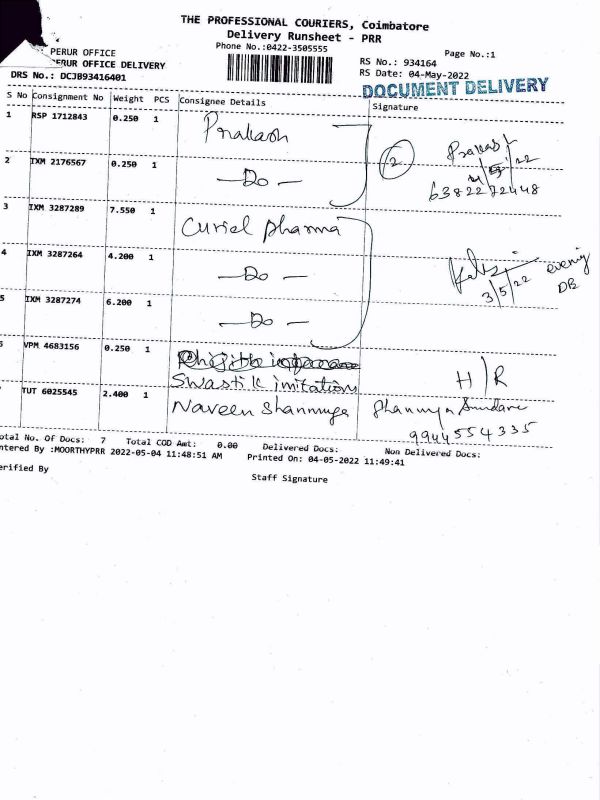 THE PROFESSIONAL COURIERS, Coimbatore
Delivery Runsheet - PRR
Phone No.:0422-3505555
Page No.:1
PERUR OFFICE
PERUR OFFICE DELIVERY
RS No.: 934164
RS Date: 04-May-2022
DRS No.: DCJB93416401
DOCUMENT DELIVERY
S No Consignment No Weight PCS Consignee Details Signature
1 RSP 1712843 0.250 1 Prakash
2 Prakash
2 IXM 2176567 0.250 1 - Do -
6382272448
3 IXM 3287289 7.550 1 Curiel pharma
4 IXM 3287264 4.200 1 - Do -
evenig
3/5/22 DB
5 IXM 3287274 6.200 1 - Do -
VPM 4683156 0.250 1
Swastik imitations H/R
TUT 6025545 2.400 1 Naveen Shanmuga
9944554335
otal No. Of Docs: 7 Total COD Amt: 0.00 Delivered Docs: Non Delivered Docs:
ntered By :MOORTHYPRR 2022-05-04 11:48:51 AM Printed On: 04-05-2022 11:49:41
erified By
Staff Signature